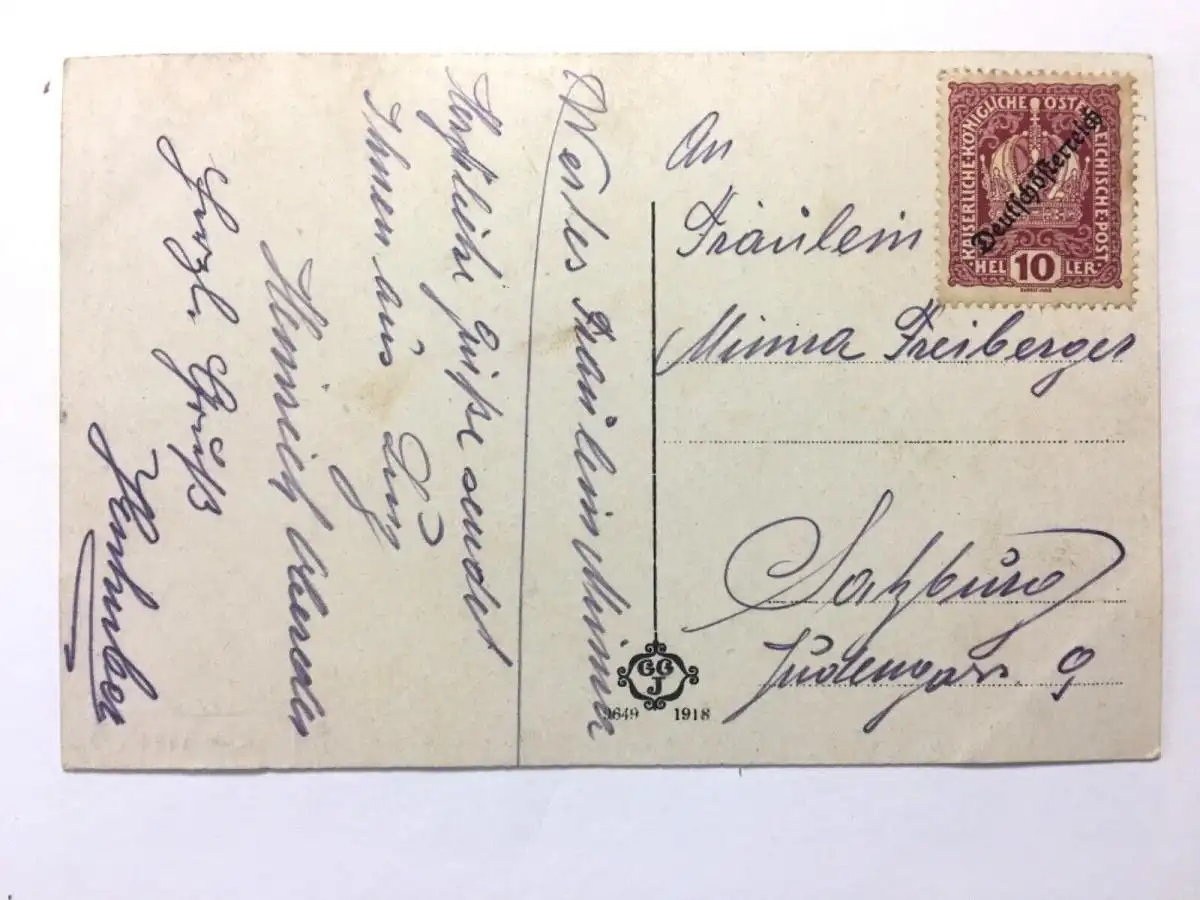 Wertes Fräulein Minna
Herzliche Grüße sendet
Ihnen aus Linz
Heinrich
Herzl. Grüß
An
Fräulein
Minna Freiberger
Salzburg
Judengass. 9
KAISERLICHE·KÖNIGLICHE ÖSTERREICHISCHE·POST
Deutschösterreich
HEL 10 LER
GGJ
9649 1918